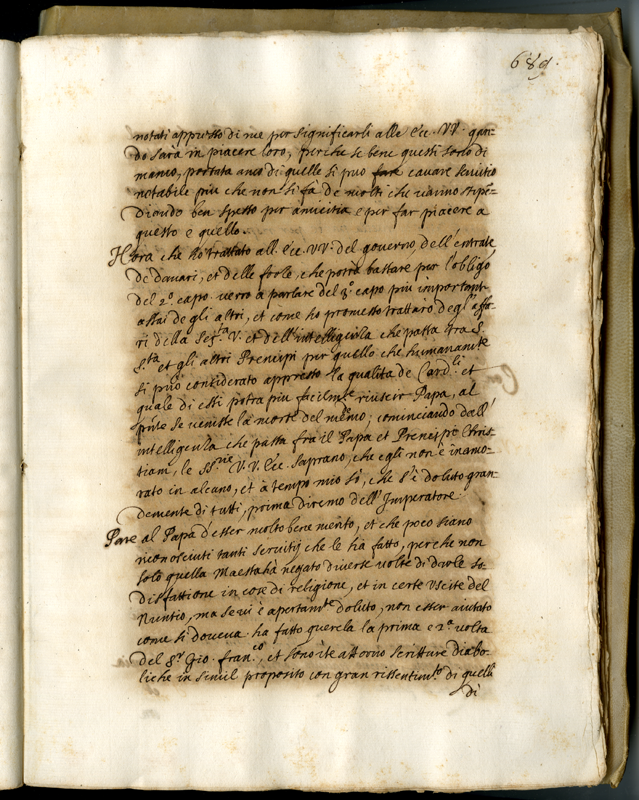 689.
notati appresso di me per significarli alle Ecc. VV. qan-
do sarà in piacere loro, perche se bene questi sono di
manco, portata anco di quelle si puo fare cavare servitio
notabile piu che non si fà de molti che vanno stipe-
diando ben spesso per amicitia e per far piacere a
questo e quello.
Hora che hò trattato all. Ecc. VV. del governo, dell'entrate
de danari, et delle forze, che potrà bastare per l'obligo
del 2º capo verro à parlare del 3º capo più important
assai de gli altri, et come ho promesso trattarò degl'affa-
ri della Ser.ta V. et dell'intelligentia che passa tra S.
S.ta et gli altri Prencipi per quello che humanamte
si può considerato appresso la qualita de Card.li et
quale di essi potra piu facilmte riuscir Papa, al
pnte se venisse la morte del mdmo; cominciando dall'
intelligentia che passa fra il Papa et Prencipi Chris-
tiani, le SS.rie V.V. Ecc. saprano, che egli non è inamo-
rato in alcuno, et à tempo mio sò, che s'è doluto gran-
demente di tutti, prima diremo dell'Imperatore.
Pare al Papa d'esser molto bene merito, et che poco siano
riconosciuti tanti servitij che le ha fatto, perche non
solo quella Maestà hà negato diverse volte di darle so-
disfattione in cose di religione, et in certe uscite del
Nuntio, ma se ne è apertamte doluto, non esser aiutato
come si doveva. ha fatto querela la prima e 2ª volta
del Sr. Gio: Fran.co, et sono ite attorno scritture diabo-
liche in simil proposito con gran rissentim.to di quelli
di